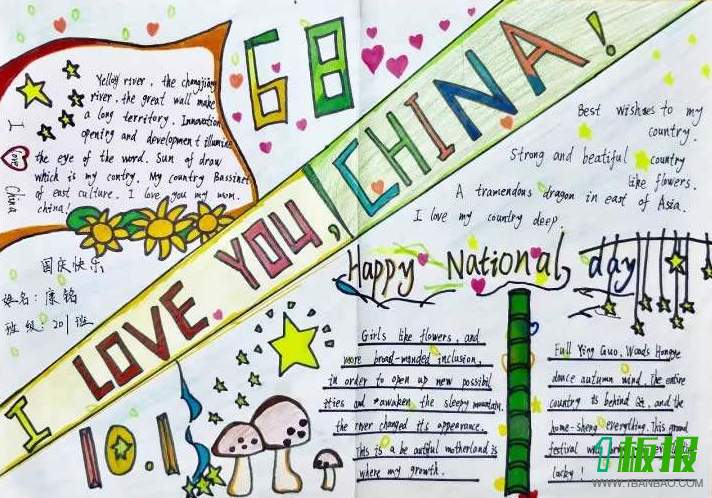 68
Yellow river, the changjiang
river, the great wall make
a long territory. Innovation,
opening and development illumine
the eye of the word. Sun of draw
which is my contry. My country Bassinet
of east culture. I love you my mom.
china!
I Love China
I LOVE YOU, CHINA!
Best wishses to my
country.
Strong and beatiful country
like flowers.
A tramendous dragon in east of Asia.
I love my country deep.
国庆快乐
姓名:康铭
班级:201班
10.1
Happy National day
Girls like flowers, and
more broad-minded inclusion,
in order to open up new possibil
ities and awaken the sleepy mountain.
the river changed its appearance.
This is a be autiful motherland is
where my growth.
Full Ying Guo, Woods Hongye
dance autumn wind, the entire
country is behind and the
home-sheng everything, this ground
festival will bring
lucky!
1板报
WWW.1BANBAO.COM